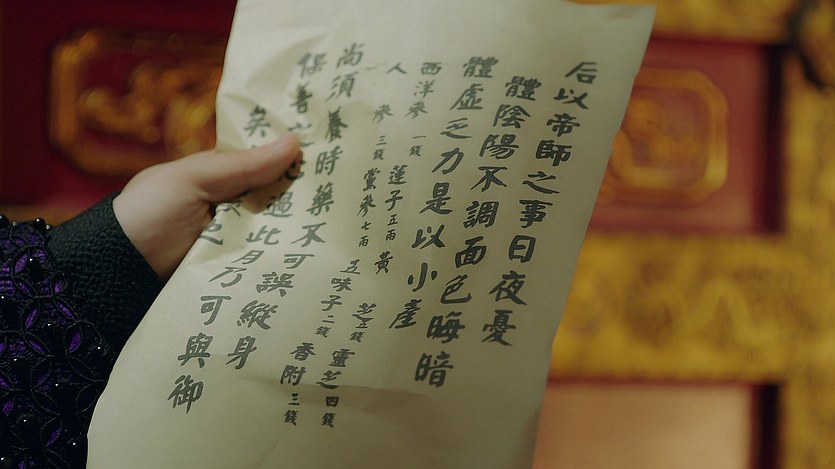 后以帝師之事日夜憂
體陰陽不調面色晦暗
體虛乏力是以小產
西洋參一錢 蓮子五兩 黃
芝五錢 靈芝四錢
人
參三錢 黨參七兩 五味子二錢 香附三錢
尚須養時藥不可誤
保善之 過此月乃可與御
縱身
矣